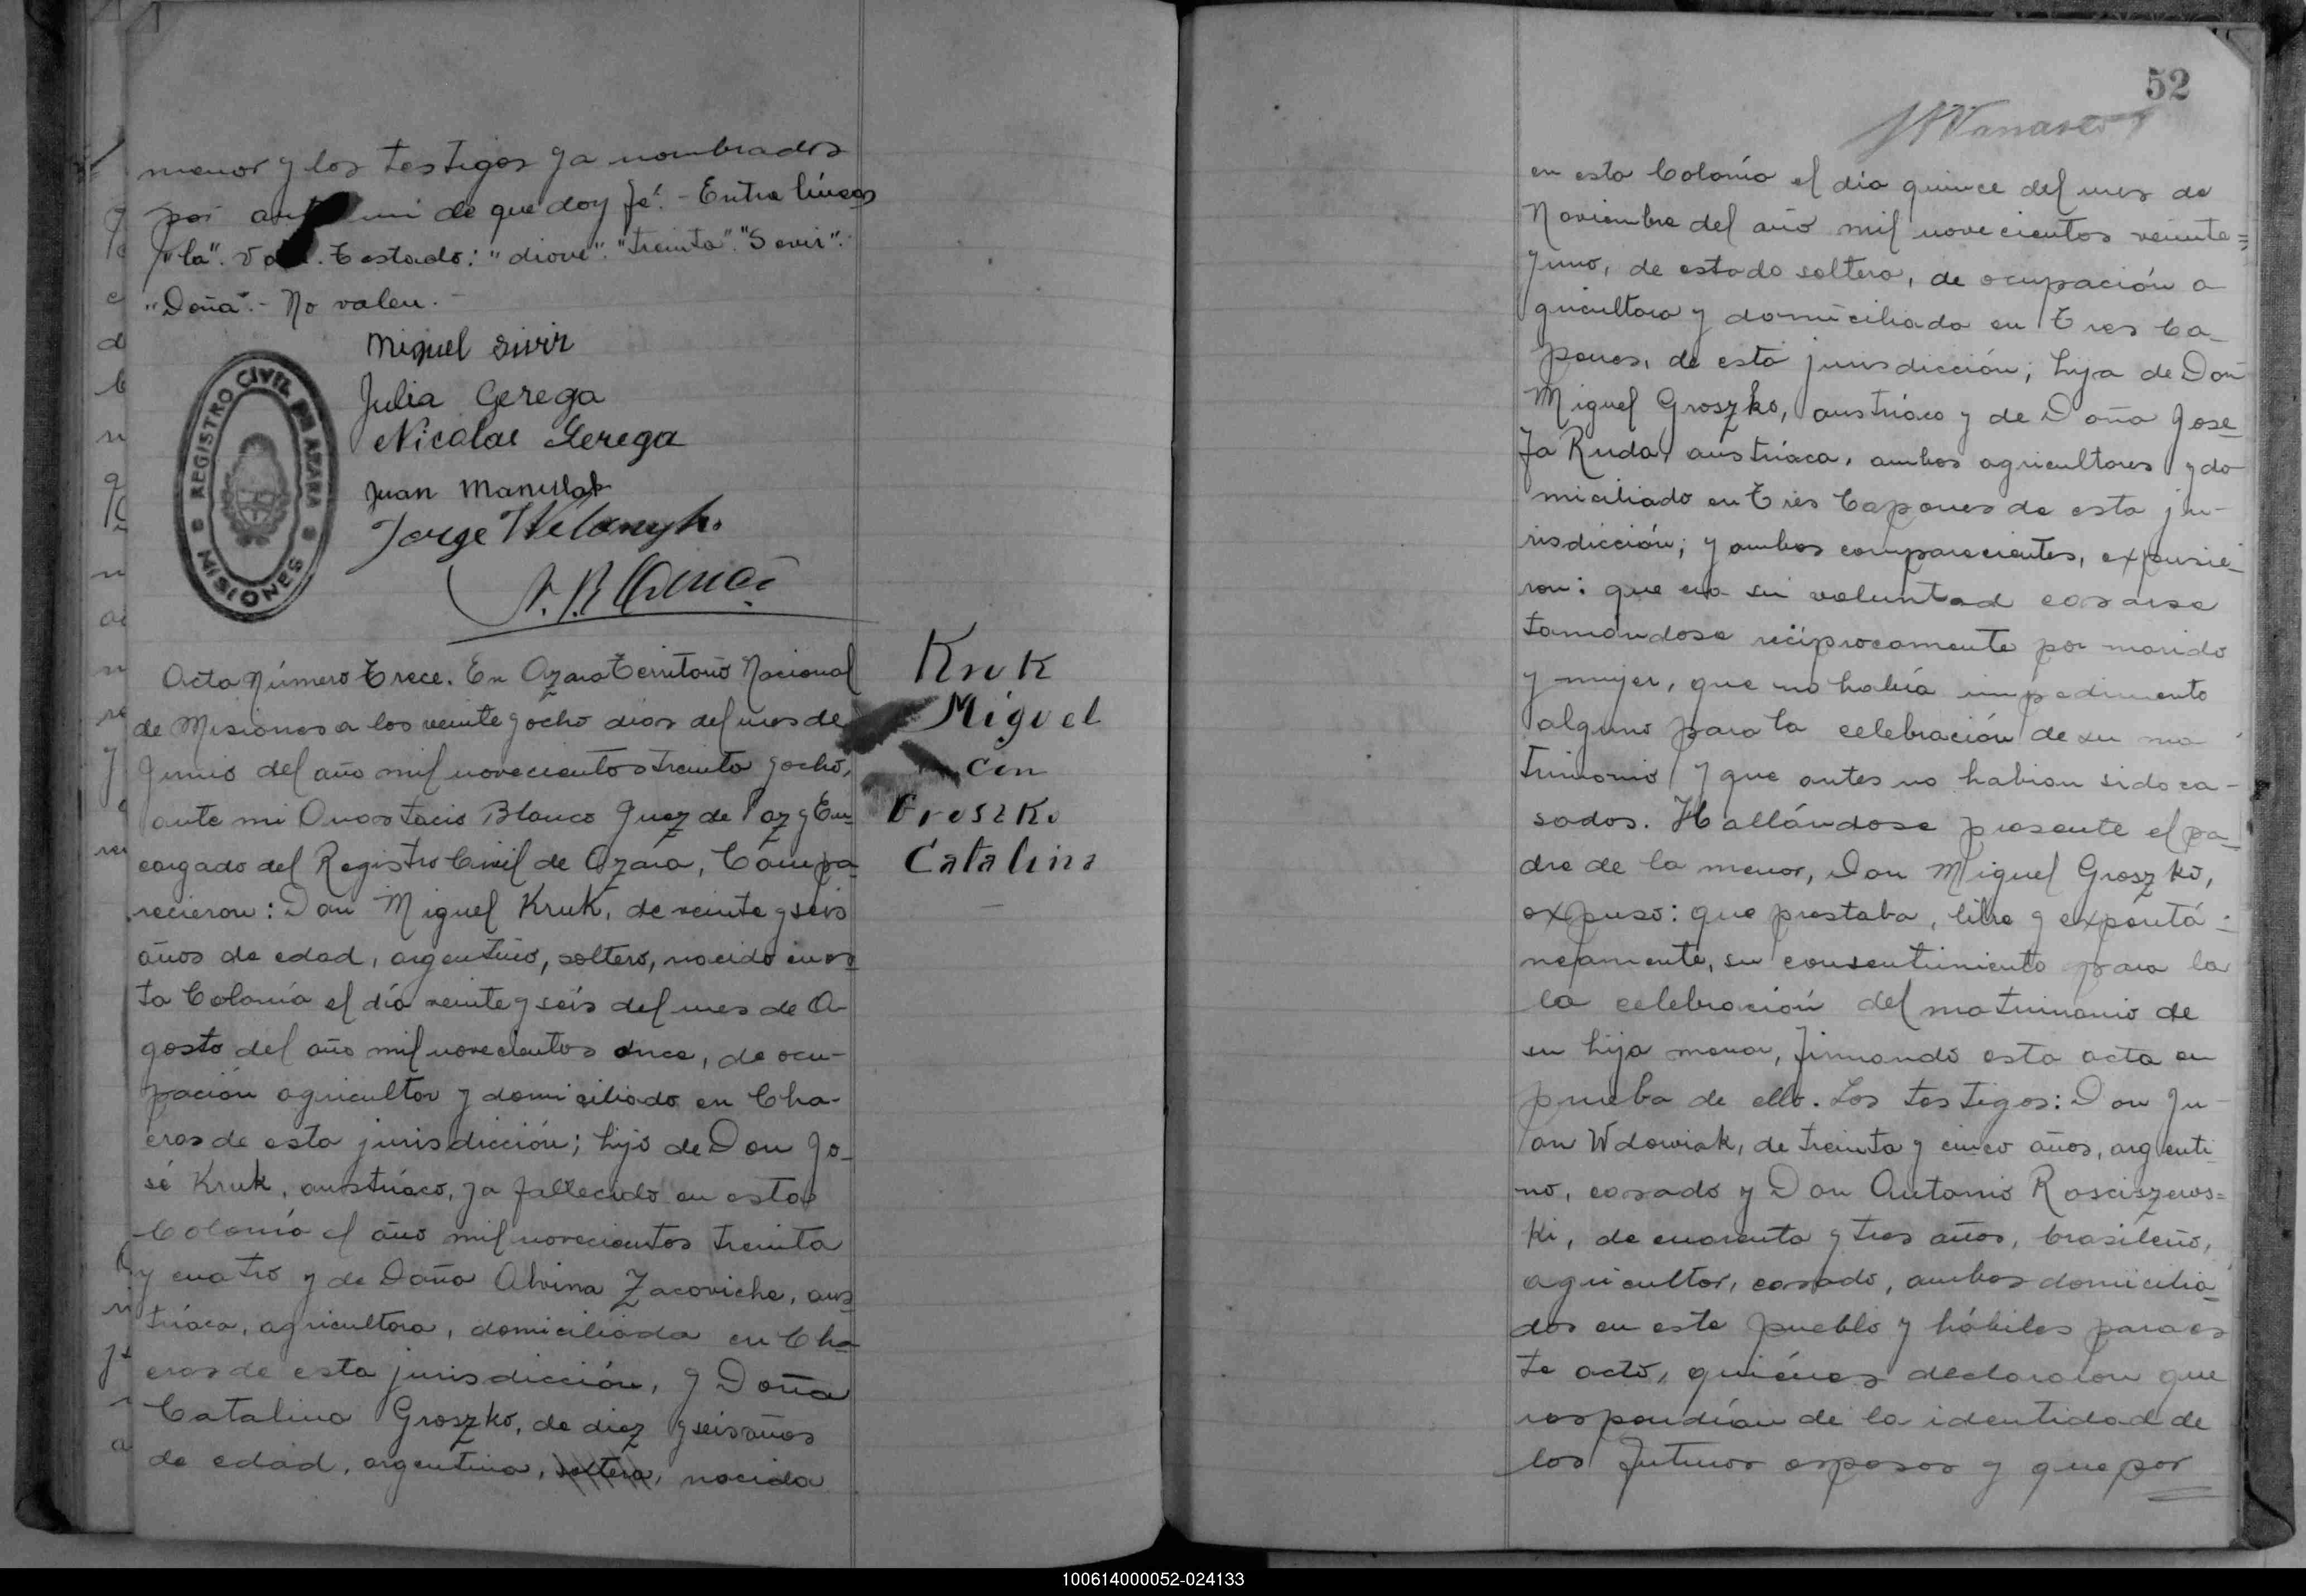 menor y los testigos ya nombrados
por ante mi de que doy fé. - Entre líneas
"la". Vale. Testado: "diove". "treinta". "Sevir".
"Doña". - No valen. -
Miguel Sivir
Julia Gerega
Nicolas Gerega
Juan
Jorge
REGISTRO CIVIL DE AZARA
MISIONES
Acta Número Trece. En Azara Territorio Nacional
de Misiones a los veinte y ocho dias del mes de
Junio del año mil novecientos treinta y ocho,
ante mi Anastacio Blanco Juez de Paz y En-
cargado del Registro Civil de Azara, Compa-
recieron: Don Miguel Kruk, de veinte y seis
años de edad, argentino, soltero, nacido en es-
ta Colonia el día veinte y seis del mes de A-
gosto del año mil novecientos once, de ocu-
pación agricultor y domiciliado en Cha-
cras de esta jurisdicción; hijo de Don Jo-
sé Kruk, austríaco, ya fallecido en esta
Colonia el año mil novecientos treinta
y cuatro y de Doña Alvina Zacoviche, aus-
tríaca, agricultora, domiciliada en Cha-
cras de esta jurisdicción, y Doña
Catalina Groszko, de diez y seis años
de edad, argentina, soltera, nacida
Kruk
Miguel
con
Groszko
Catalina
52
en esta Colonia el día quince del mes de
Noviembre del año mil novecientos veinte=
y uno, de estado soltera, de ocupación a-
gricultora y domiciliada en Tres Ca-
pones, de esta jurisdicción; hija de Don
Miguel Groszko, austríaco y de Doña Jose-
fa Ruda, austríaca, ambos agricultores y do-
miciliado en Tres Capones de esta ju-
risdicción; y ambos comparecientes, expusie-
ron: que era su voluntad casarse
tomandose recíprocamente por marido
y mujer, que no había impedimento
alguno para la celebración de su ma-
trimonio y que antes no habian sido ca-
sados. Hallándose presente el pa-
dre de la menor, Don Miguel Groszko,
expuso: que prestaba, libre y expontá-
neamente, su consentimiento para la
la celebración del matrimonio de
su hija menor, firmando esta acta en
prueba de ello. Los testigos: Don Ju-
an Wdowiak, de treinta y cinco años, argenti-
no, casado y Don Antonio Rosciszews=
ki, de cuarenta y tres años, brasileño,
agricultor, casado, ambos domicilia-
dos en este pueblo y hábiles para es-
te acto, quiénes declararon que
respondían de la identidad de
los futuros esposos y que por
100614000052-024133